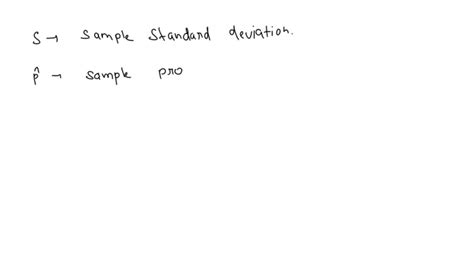 S → Sample Standard deviation.
p̂ → sample pro